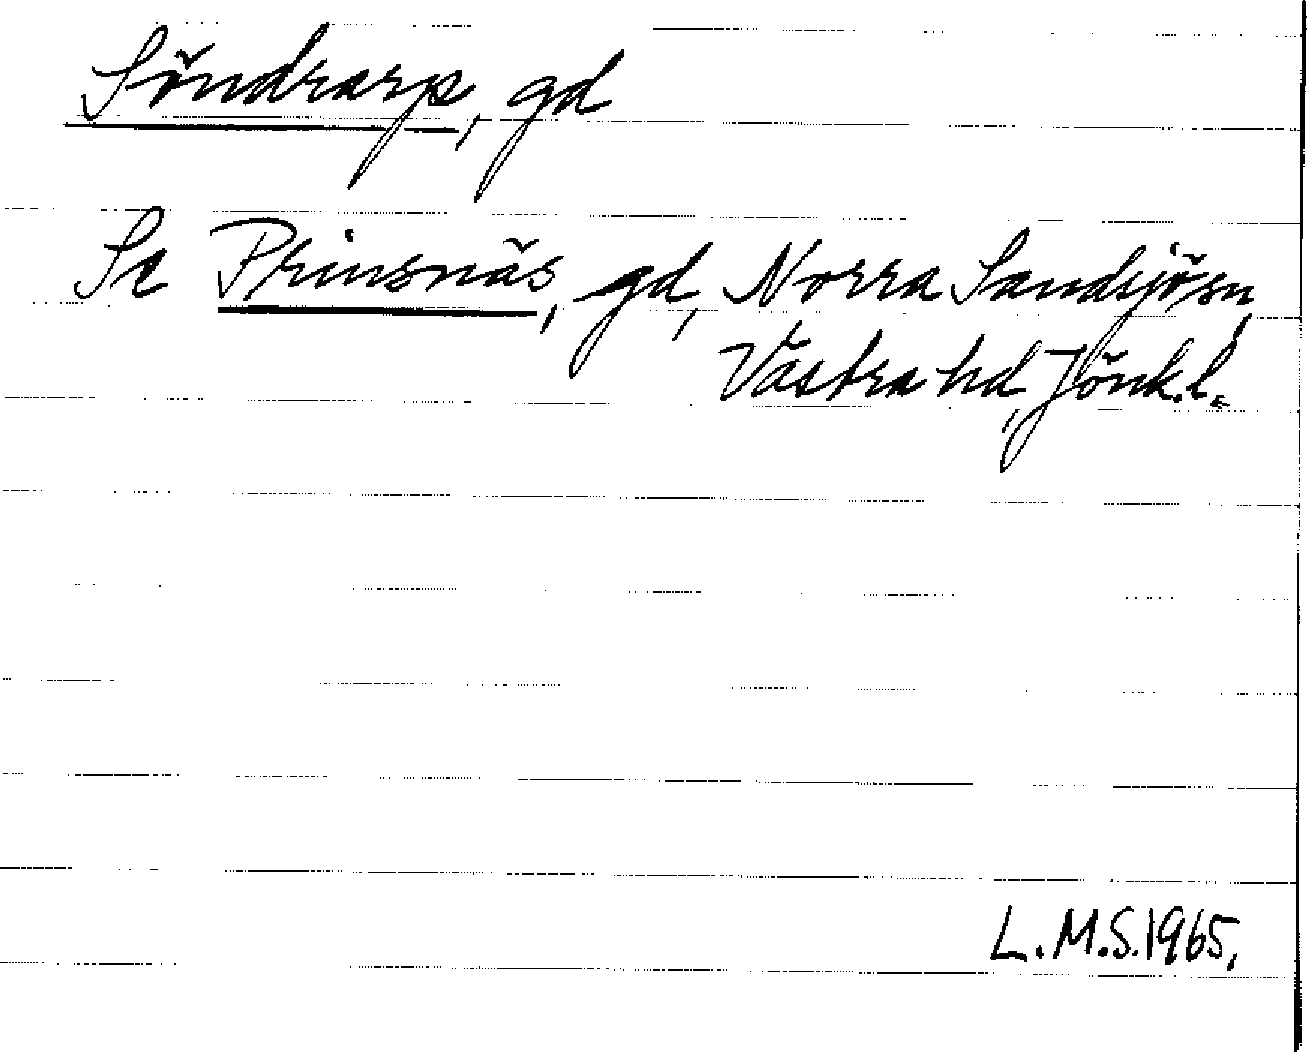 Söndrarp, gd
Se Prinsnäs, gd, Norra Sandsjö sn,
Västra hd, Jönk.l.
L.M.S.1965.